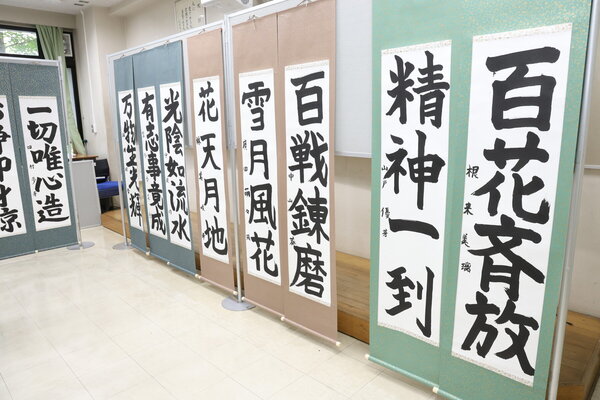 百花斉放
根来美璃
精神一到
百戦錬磨
雪月風花
花天月地
光陰如流水
有志事竟成
万物生光輝
一切唯心造